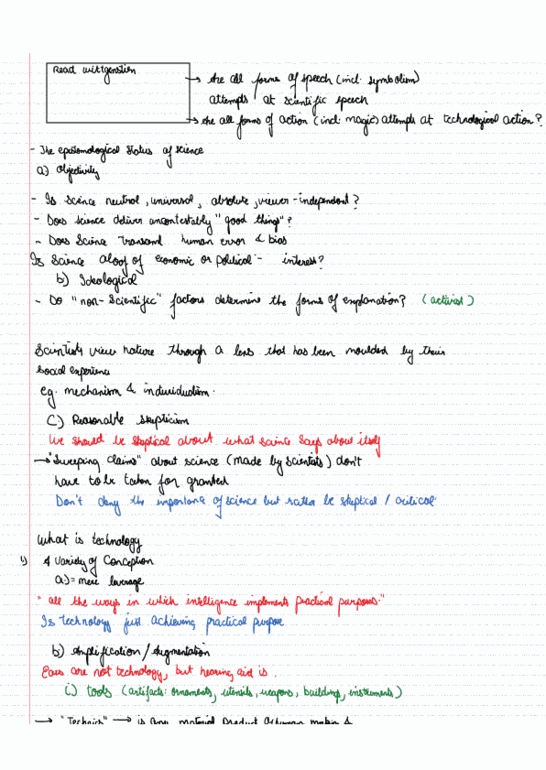 Read wittgenstien
→ Are all forms of speech (incl. symbolism)
attempts at scientific speech
→ Are all forms of action (incl: magic) attempts at technological action?
- The epistimological status of science
a) Objectivity
- Is science neutral, universal, absolute, viewer-independent?
- Does science deliver uncontestably "good things"?
- Does Science transend human error & bias
Is Science aloof of economic or political - interest?
b) Ideological
- Do "non-Scientific" factors determine the forms of explanation? (activist)
Scientists view nature through a lens that has been moulded by their
social experience
eg. mechanism & individualism.
C) Reasonable Skepticism
We should be skeptical about what science says about itself
→ "Sweeping claims" about science (made by scientists) don't
have to be taken for granted
Don't deny the importance of science but rather be skeptical / critical
What is technology
1) A variety of Conception
a) = mere leverage
"all the ways in which intelligence implements practical purposes."
Is technology just achieving practical purpose
b) Amplification/Augmentation
Ears are not technology, but hearing aid is.
i) tools (artifacts: ornaments, utensils, weapons, buildings, instruments)
→ "Technics" → is any material product of human making &